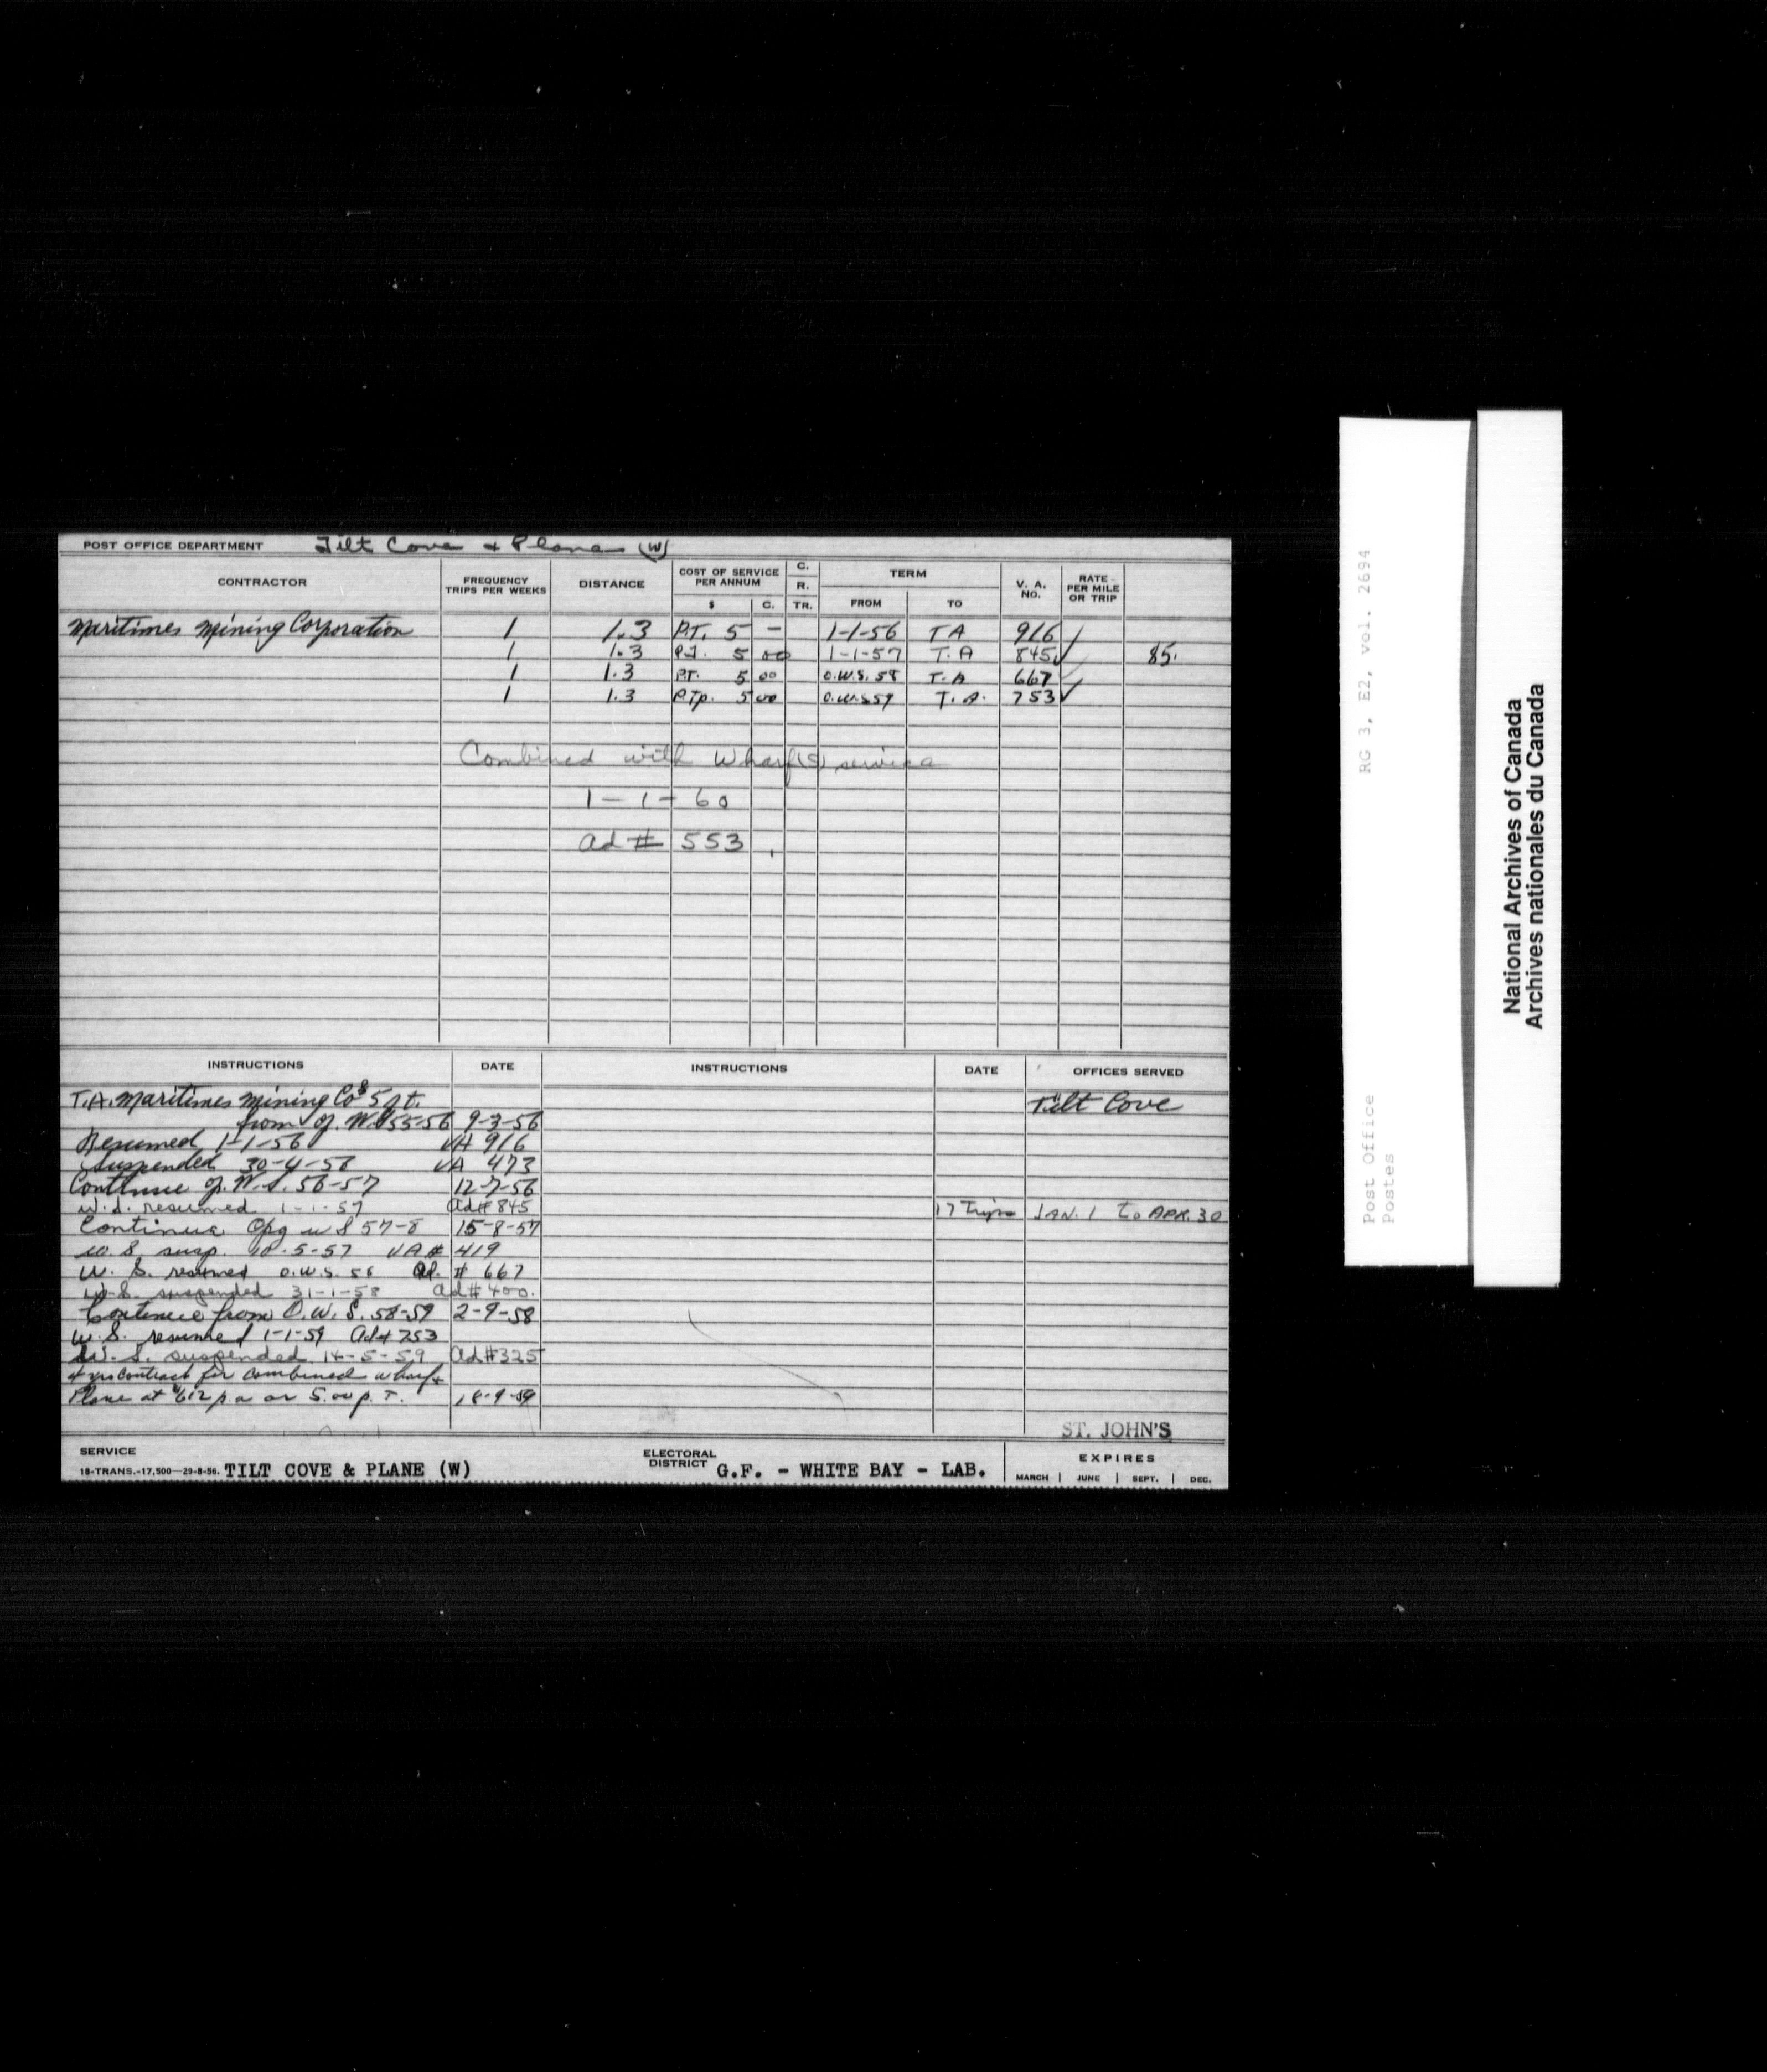 POST OFFICE DEPARTMENT Tilt Cove & Plane (W)
CONTRACTOR FREQUENCY TRIPS PER WEEKS DISTANCE COST OF SERVICE PER ANNUM $ C. C. R. TR. TERM FROM TO V. A. NO. RATE PER MILE OR TRIP
Maritimes Mining Corporation 1 1.3 P.T. 5 — 1-1-56 TA 916
1 1.3 P.T. 5 00 1-1-57 T.A 845 85.
1 1.3 P.T. 5 00 O.W.S. 58 T.A 667
1 1.3 P Tp. 5 00 O.W.S 59 T.A. 753
Combined with Wharf(S) service
1-1-60
ad # 553
INSTRUCTIONS DATE INSTRUCTIONS DATE OFFICES SERVED
T.A. Maritimes Mining Co $5 p.t. Tilt Cove
from of W.S 55-56 9-3-56
Resumed 1-1-56 VA 916
Suspended 30-4-56 VA 473
Continue of W.S. 56-57 12-7-56
W.S. resumed 1-1-57 Ad# 845 17 Trips JAN. 1 to APR. 30
Continue Opg W S 57-8 15-8-57
W. S. susp. 10-5-57 VA # 419
W. S. resumed O.W.S. 58 Ad. # 667
W.S. suspended 31-1-58 Ad# 400.
Continue from O.W.S. 58-59 2-9-58
W.S. resumed 1-1-59 Ad# 753
W.S. suspended 14-5-59 Ad# 325
4 yrs contract for combined wharf &
Plane at $612 p.a or 5.00 p.T. 18-9-59
ST. JOHN'S
SERVICE
18-TRANS.-17,500—29-8-56. TILT COVE & PLANE (W) ELECTORAL DISTRICT G.F. - WHITE BAY - LAB. EXPIRES
MARCH | JUNE | SEPT. | DEC.
RG 3, E2, vol. 2694
Post Office
Postes
National Archives of Canada
Archives nationales du Canada